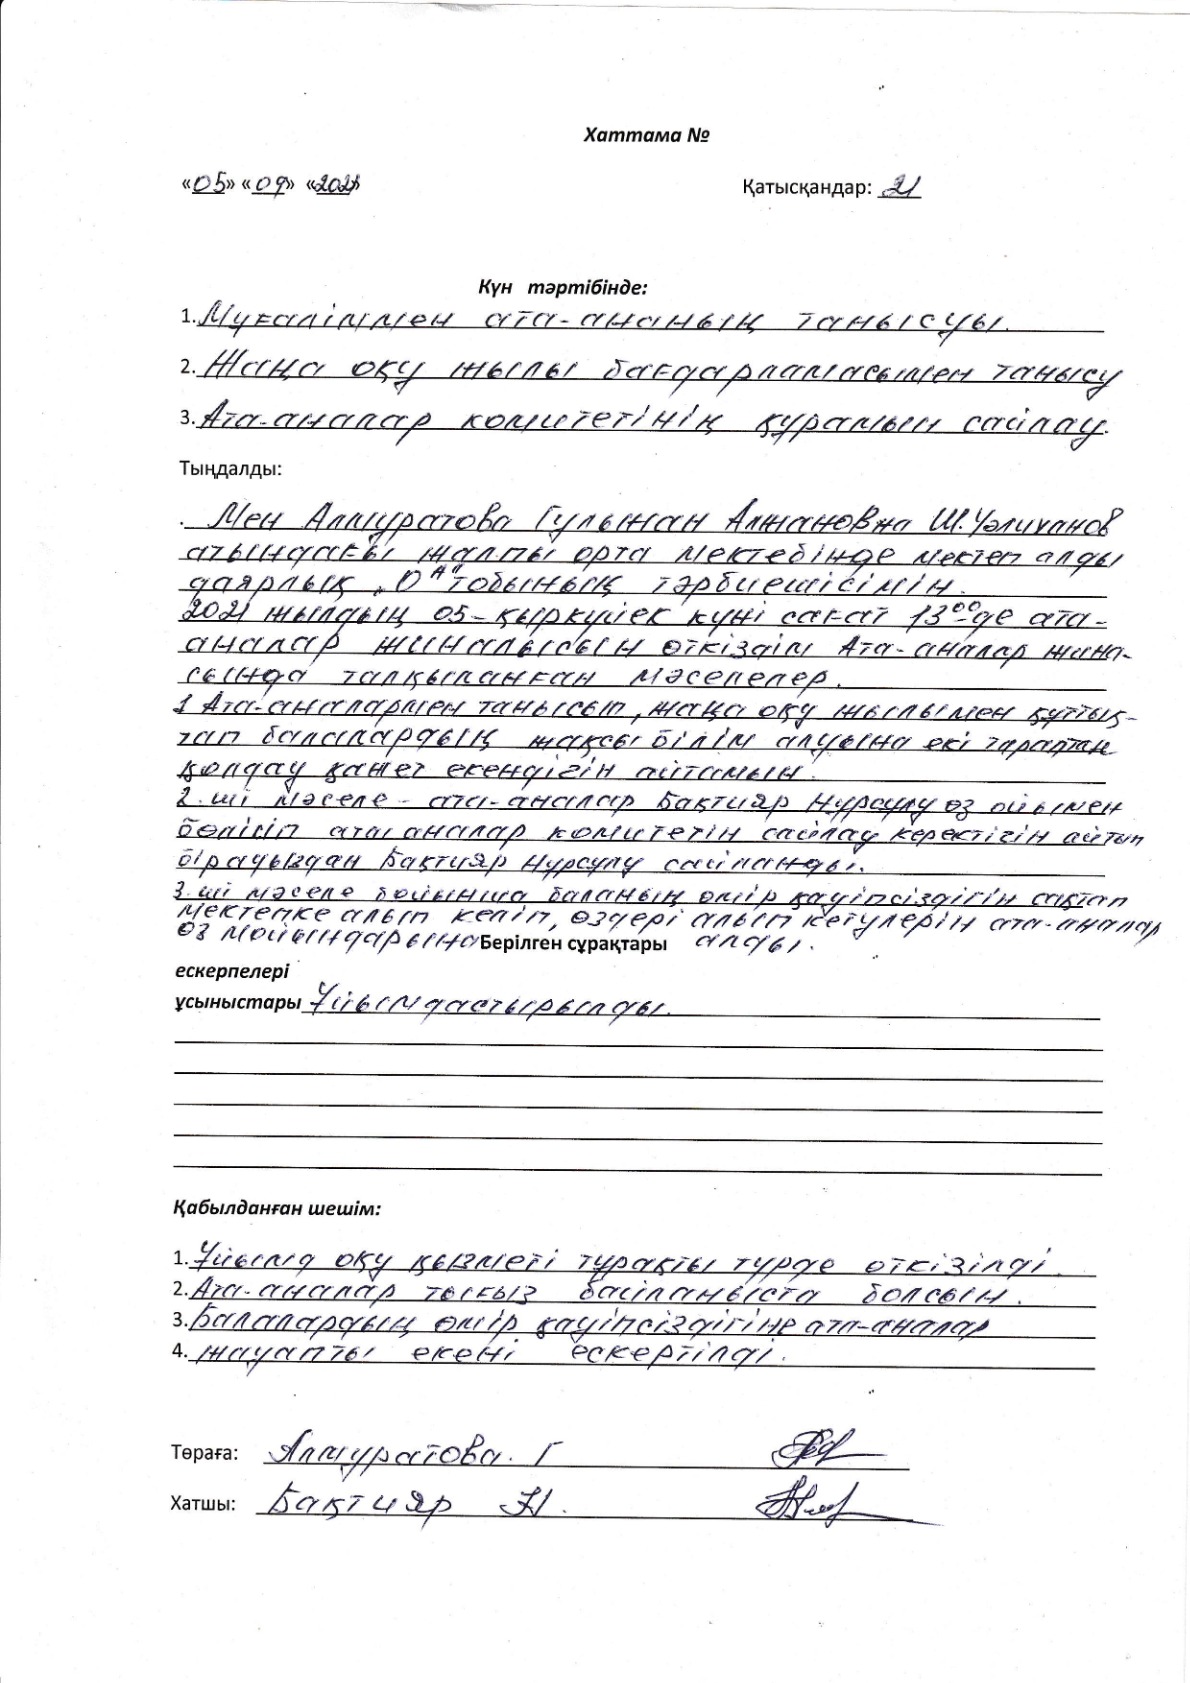 Хаттама №
«05» «09» «2021»
Қатысқандар: 21
Күн тәртібінде:
1. Мұғаліммен ата-ананың танысуы.
2. Жаңа оқу жылы бағдарламасымен танысу
3. Ата-аналар комитетінің құрамын сайлау.
Тыңдалды:
. Мен Алмуратова Гулынан Алжановна Ш.Уәлиханов
атындағы жалпы орта мектебінде мектеп алды
даярлық „0 А" тобының тәрбиешісімін.
2021 жылдың 05-қыркүйек күні сағат 13⁰⁰-де ата-
аналар жиналысын өткіздім Ата-аналар жина-
сында талқыланған мәселелер.
1 Ата-аналармен танысып, жаңа оқу жылымен құттық-
тап балалардың жақсы білім алуына екі тараптан
қолдау қажет екендігін айтамын.
2. ші мәселе - ата-аналар Бақтияр Нұрсұлу өз ойымен
бөлісіп ата аналар комитетін сайлау керектігін айтып
бірауыздан Бақтияр Нұрсұлу сайланды.
3. ші мәселе бойынша баланың өмір қауіпсіздігін сақтап
мектепке алып келіп, өздері алып кетулерін ата-аналар
өз мойындарына Берілген сұрақтары алды.
ескерпелері
ұсыныстары Ұйымдастырылды.
Қабылданған шешім:
1. Ұйымд оқу қызметі тұрақты түрде өткізілді.
2. Ата-аналар тығыз байланыста болсын.
3. Балалардың өмір қауіпсіздігіне ата-аналар
4. жауапты екені ескертілді.
Төраға: Алмуратова. Г
Хатшы: Бақтияр Н.